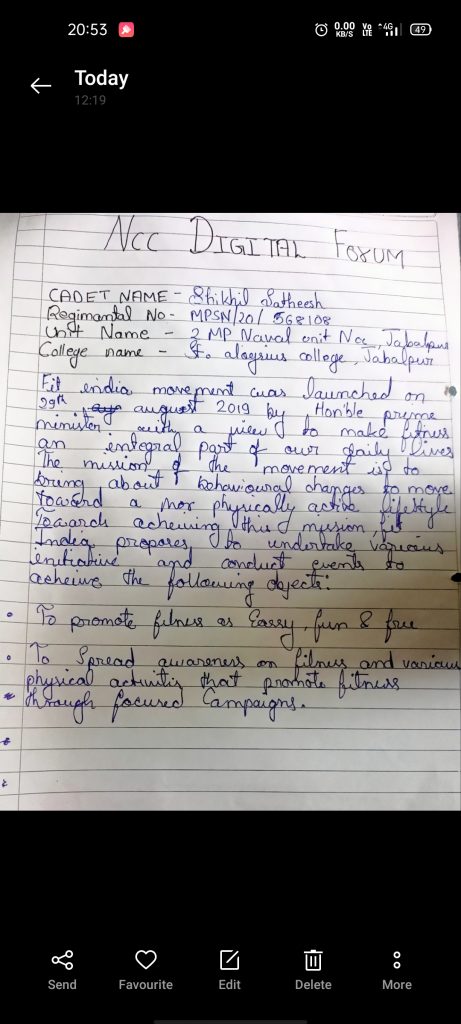 20:53
0.00 KB/S
Vo LTE
4G
49
Today
12:19
NCC DIGITAL FORUM
CADET NAME - Shikhil Satheesh
Regimantal No - MPSN/20/ 568108
Unit Name - 2 MP Naval unit Ncc, Jabalpur
College name - St. aloysius college, Jabalpur
Fit india movement was launched on
29th august 2019 by Hon'ble pryme
minister with a view to make fitness
an integral part of our daily lives
The mission of the movement is to
bring about behavioural changes to move
toward a mor physically active lifestyle
Towards acheiving this mission, fit
India proposes to undertake various
initiative and conduct events to
acheive the following objects:
• To promote fitness as Eassy, fun & free
• To Spread awareness on fitness and various
physical activitis that promote fitness
through focused Campaigns.
Send
Favourite
Edit
Delete
More